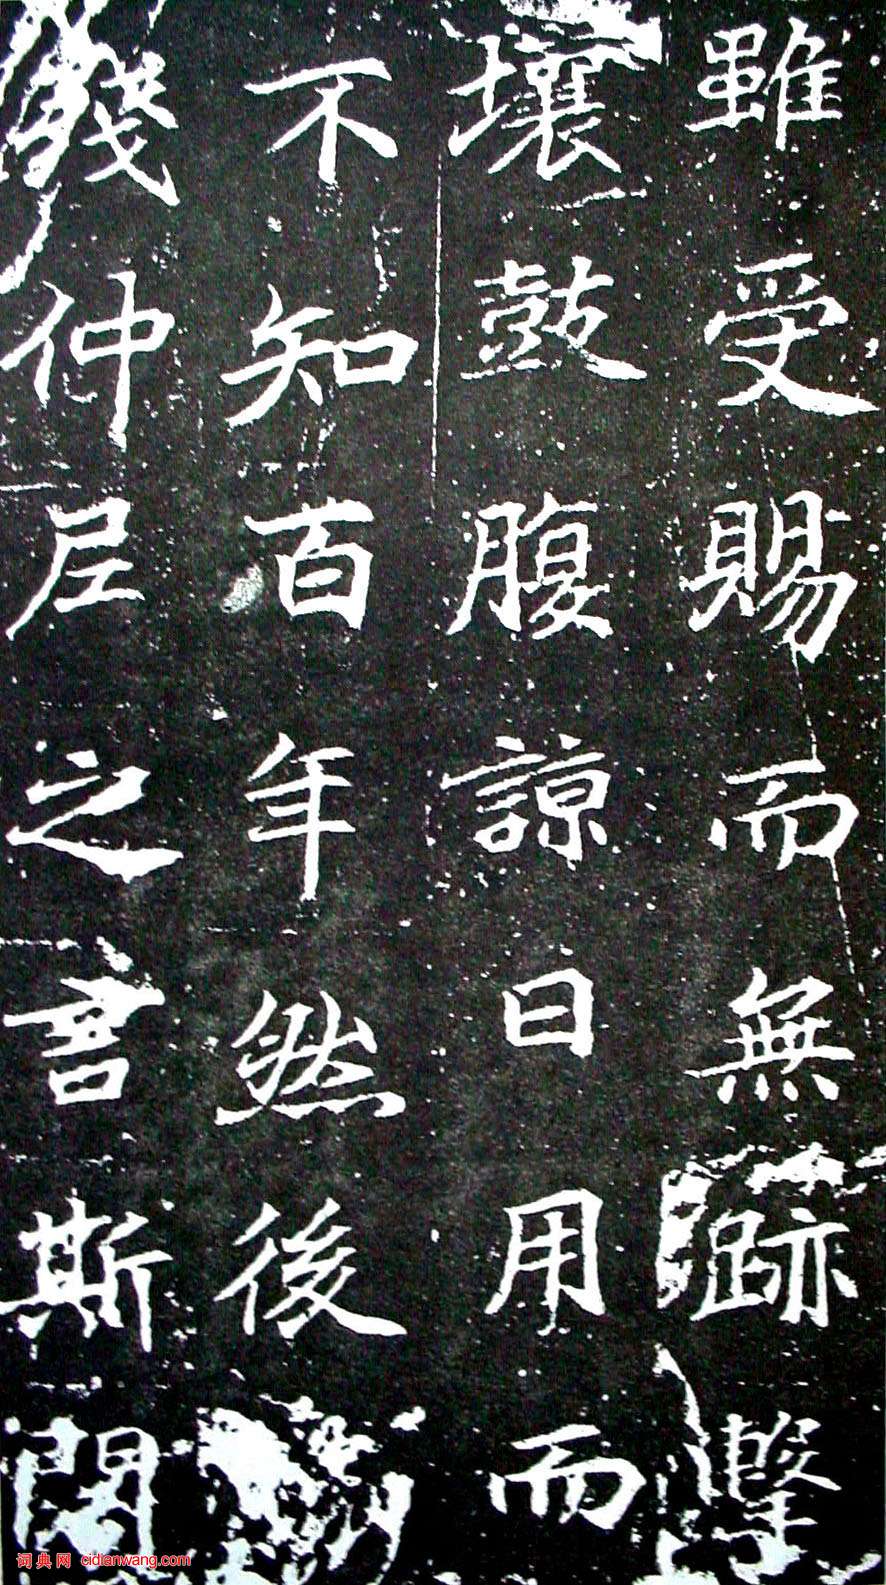 雖受賜而無跡擊
壤鼓腹諒日用而
不知百年然後
殘仲尼之言斯
词典网 cidianwang.com